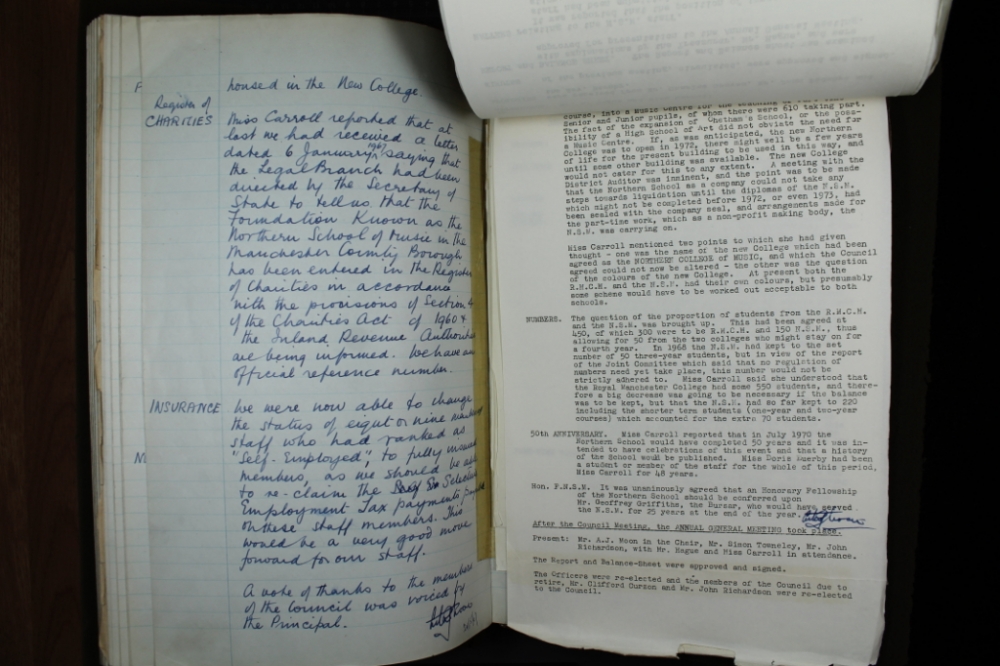 F
housed in the New College.
Register of
CHARITIES
Miss Carroll reported that at
last we had received a letter
dated 6 January, 1967 saying that
the Legal Branch had been
directed by the Secretary of
State to tell us that the
Foundation Known as the
Northern School of Music in the
Manchester County Borough
has been entered in the Register
of Charities in accordance
with the provisions of Section 4
of the Charities Act of 1960 &
the Inland Revenue Authorities
are being informed. We have an
official reference number.
INSURANCE
We were now able to change
the status of eight or nine
staff who had ranked as
"Self-Employed", to fully insured
M
members, as we should be able
to re-claim the Selective
Employment Tax payments
on these staff members. This
would be a very good move
forward for our staff.
A vote of thanks to the members
of the Council was voiced by
the Principal.
course, into a Music Centre for the teaching of
Senior and Junior pupils, of whom there were 610 taking part.
The fact of the expansion of Chetham's School, or the poss-
ibility of a High School of Art did not obviate the need for
a Music Centre. If, as was anticipated, the new Northern
College was to open in 1972, there might well be a few years
of life for the present building to be used in this way, and
until some other building was available. The new College
would not cater for this to any extent. A meeting with the
District Auditor was imminent, and the point was to be made
that the Northern School as a company could not take any
steps towards liquidation until the diplomas of the N.S.M.
which might not be completed before 1972, or even 1973, had
been sealed with the company seal, and arrangements made for
the part-time work, which as a non-profit making body, the
N.S.M. was carrying on.
Miss Carroll mentioned two points to which she had given
thought - one was the name of the new College which had been
agreed as the NORTHERN COLLEGE of MUSIC, and which the Council
agreed could not now be altered - the other was the question
of the colours of the new College. At present both the
R.M.C.M. and the N.S.M. had their own colours, but presumably
some scheme would have to be worked out acceptable to both
schools.
NUMBERS. The question of the proportion of students from the R.M.C.M.
and the N.S.M. was brought up. This had been agreed at
450, of which 300 were to be R.M.C.M. and 150 N.S.M., thus
allowing for 50 from the two colleges who might stay on for
a fourth year. In 1968 the N.S.M. had kept to the set
number of 50 three-year students, but in view of the report
of the Joint Committee which said that no regulation of
numbers need yet take place, this number would not be
strictly adhered to. Miss Carroll said she understood that
the Royal Manchester College had some 550 students, and there-
fore a big decrease was going to be necessary if the balance
was to be kept, but that the N.S.M. had so far kept to 220
including the shorter term students (one-year and two-year
courses) which accounted for the extra 70 students.
50th ANNIVERSARY. Miss Carroll reported that in July 1970 the
Northern School would have completed 50 years and it was in-
tended to have celebrations of this event and that a history
of the School would be published. Miss Doris Euerby had been
a student or member of the staff for the whole of this period,
Miss Carroll for 48 years.
Hon. F.N.S.M. It was unanimously agreed that an Honorary Fellowship
of the Northern School should be conferred upon
Mr. Geoffrey Griffiths, the Bursar, who would have served
the N.S.M. for 25 years at the end of the year.
After the Council Meeting, the ANNUAL GENERAL MEETING took place.
Present: Mr. A.J. Moon in the Chair, Mr. Simon Towneley, Mr. John
Richardson, with Mr. Hague and Miss Carroll in attendance.
The Report and Balance-Sheet were approved and signed.
The Officers were re-elected and the members of the Council due to
retire, Mr. Clifford Curzon and Mr. John Richardson were re-elected
to the Council.